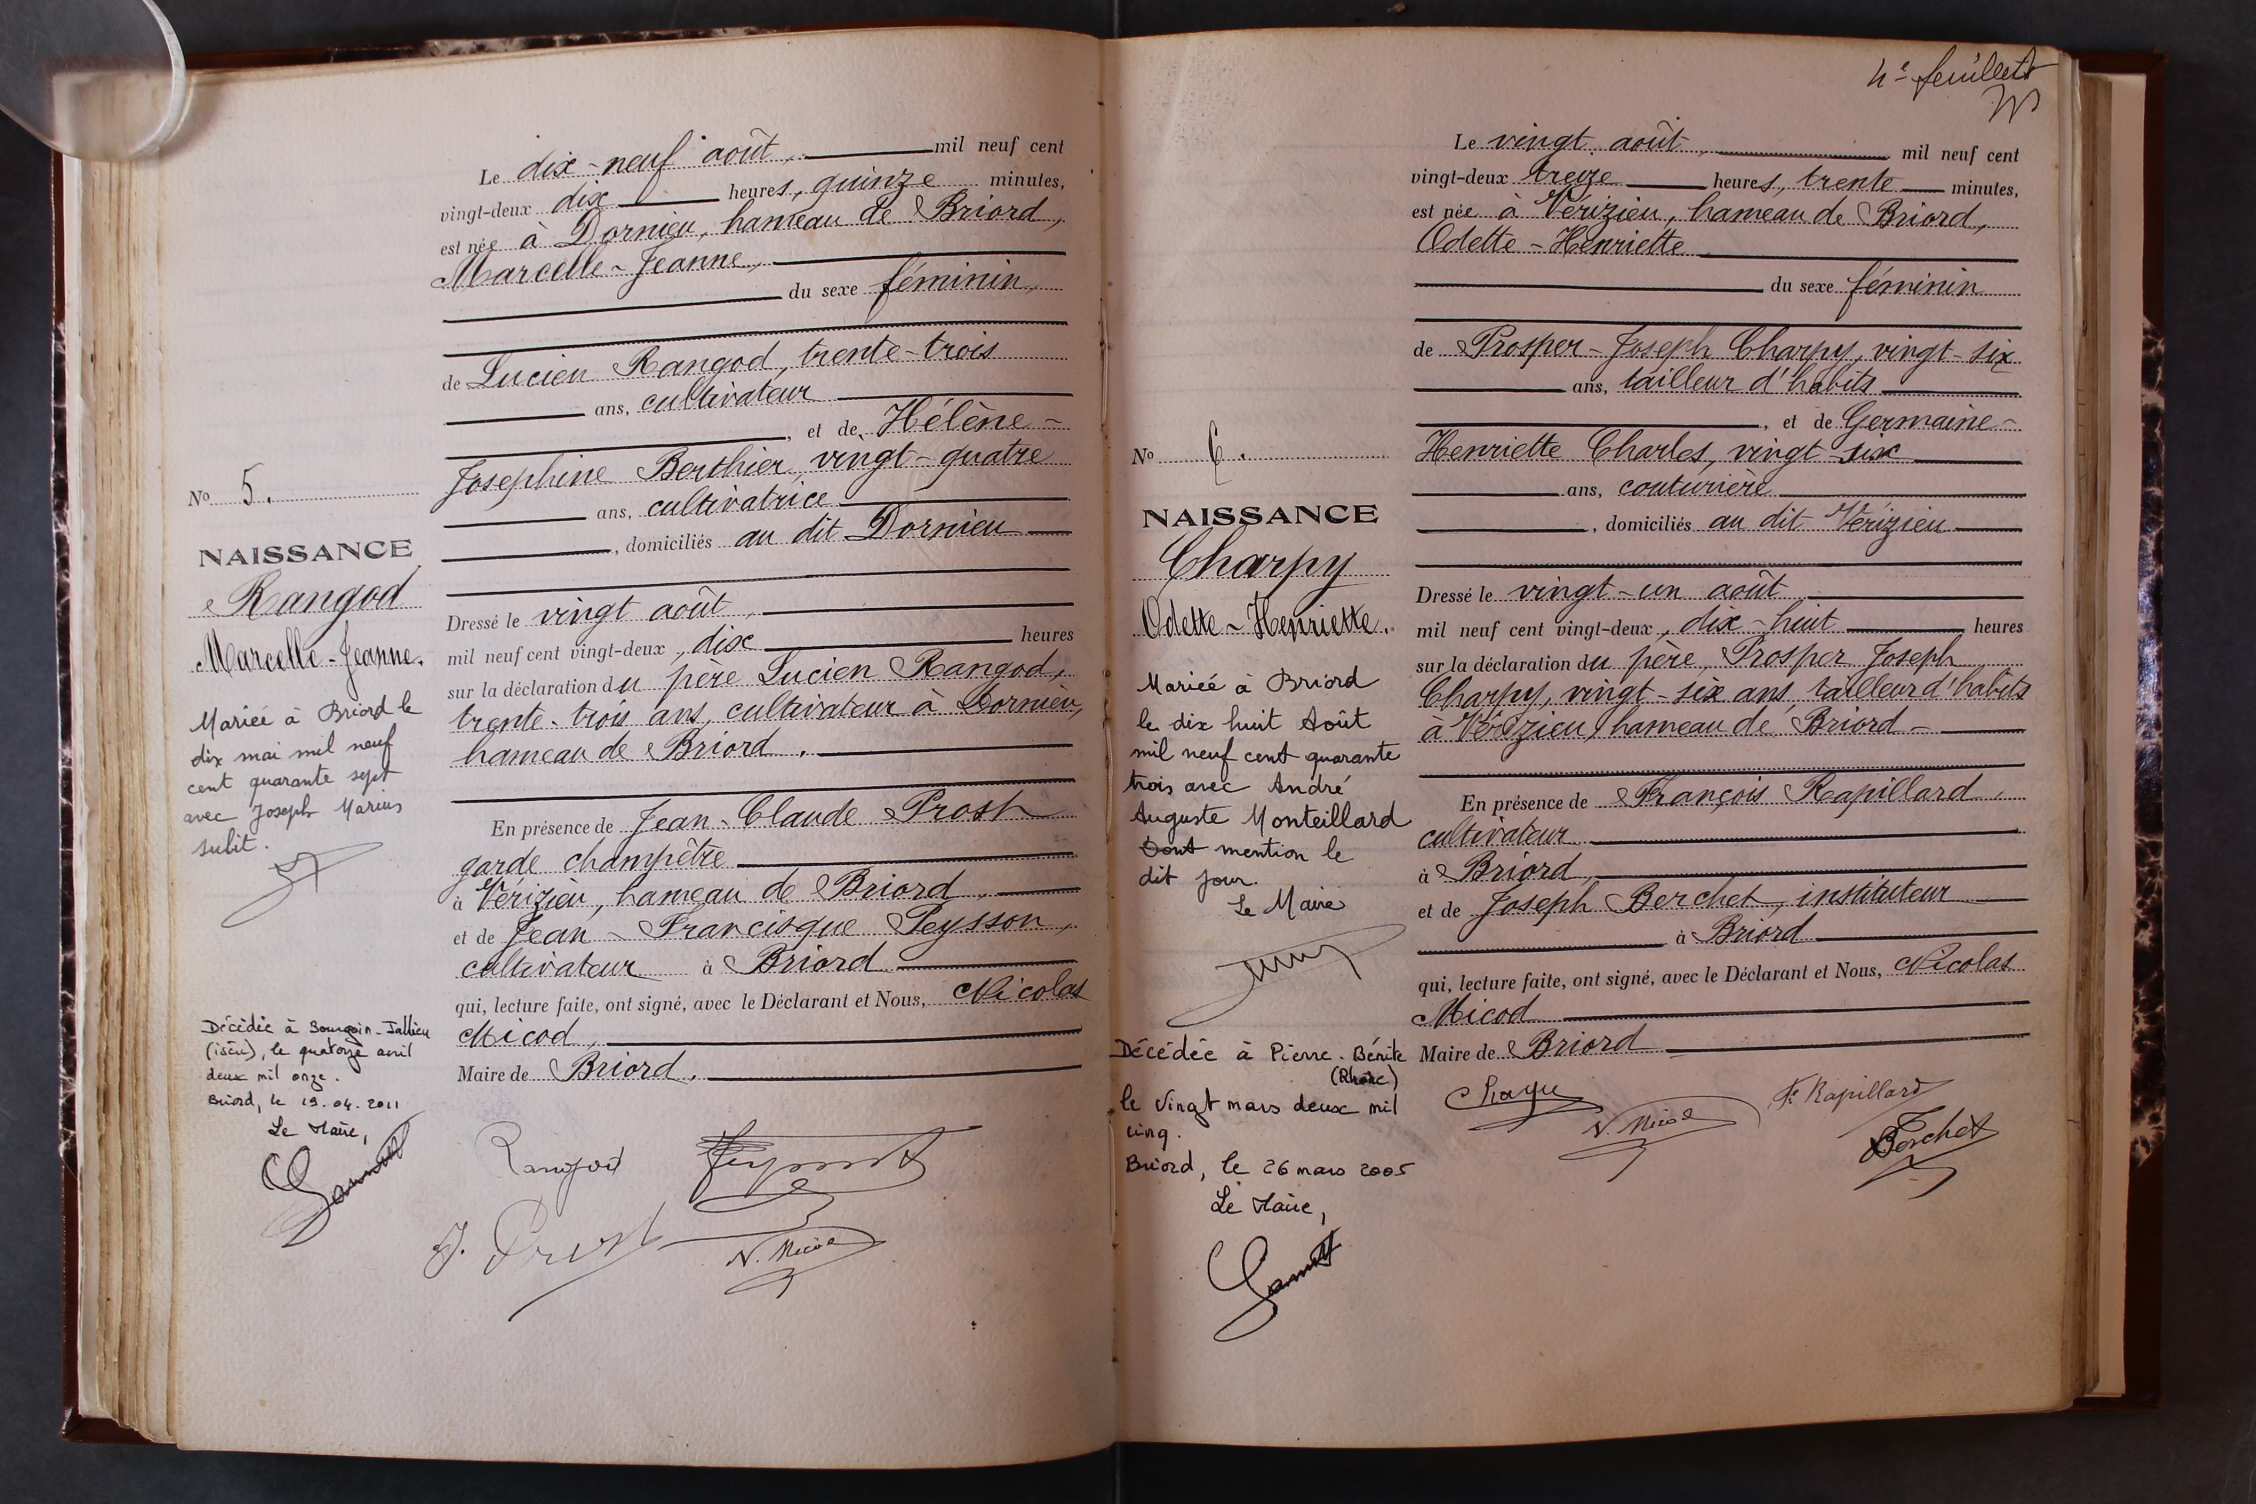 Le dix-neuf août, mil neuf cent
vingt-deux dix heures, quinze minutes,
est née à Dornieu, hameau de Briord,
Marcelle-Jeanne,
du sexe féminin,
de Lucien Rangod, trente-trois
ans, cultivateur
, et de Hélène-
Josephine Berthier, vingt-quatre
ans, cultivatrice
, domiciliés au dit Dornieu
Dressé le vingt août,
mil neuf cent vingt-deux, dix heures
sur la déclaration du père Lucien Rangod,
trente-trois ans, cultivateur à Dornieu,
hameau de Briord.
En présence de Jean-Claude Prost
garde champêtre
à Vérizieu, hameau de Briord,
et de Jean-Francisque Peysson,
cultivateur à Briord
qui, lecture faite, ont signé, avec le Déclarant et Nous, Nicolas
Micod,
Maire de Briord.
Rangod
J. Prost
N. Micod
No 5.
NAISSANCE
Rangod
Marcelle-Jeanne.
Mariée à Briord le
dix mai mil neuf
cent quarante sept
avec Joseph Marius
subit.
Décédée à Bourgoin-Jallieu
(isère), le quatorze avril
deux mil onze.
Briord, le 19.04.2011
Le Maire,
4e feuillet
Le vingt août, mil neuf cent
vingt-deux treize heures, trente minutes,
est née à Vérizieu, hameau de Briord,
Odette-Henriette
du sexe féminin
de Prosper-Joseph Charpy, vingt-six
ans, tailleur d'habits
, et de Germaine-
Henriette Charles, vingt-six
ans, couturière
, domiciliés au dit Vérizieu
Dressé le vingt-un août
mil neuf cent vingt-deux, dix-huit heures
sur la déclaration du père, Prosper Joseph
Charpy, vingt-six ans tailleur d'habits
à Vérizieu, hameau de Briord-
En présence de François Rapillard,
cultivateur
à Briord,
et de Joseph Berchet, instituteur
à Briord
qui, lecture faite, ont signé, avec le Déclarant et Nous, Nicolas
Micod
Maire de Briord
N. Micod
F. Rapillard
Berchet
No 6.
NAISSANCE
Charpy
Odette-Henriette.
Mariée à Briord
le dix huit Août
mil neuf cent quarante
trois avec André
Auguste Monteillard
Dont mention le
dit jour.
Le Maire
Décédée à Pierre-Bénite
(Rhône)
le vingt mars deux mil
cinq.
Briord, le 26 mars 2005
Le Maire,